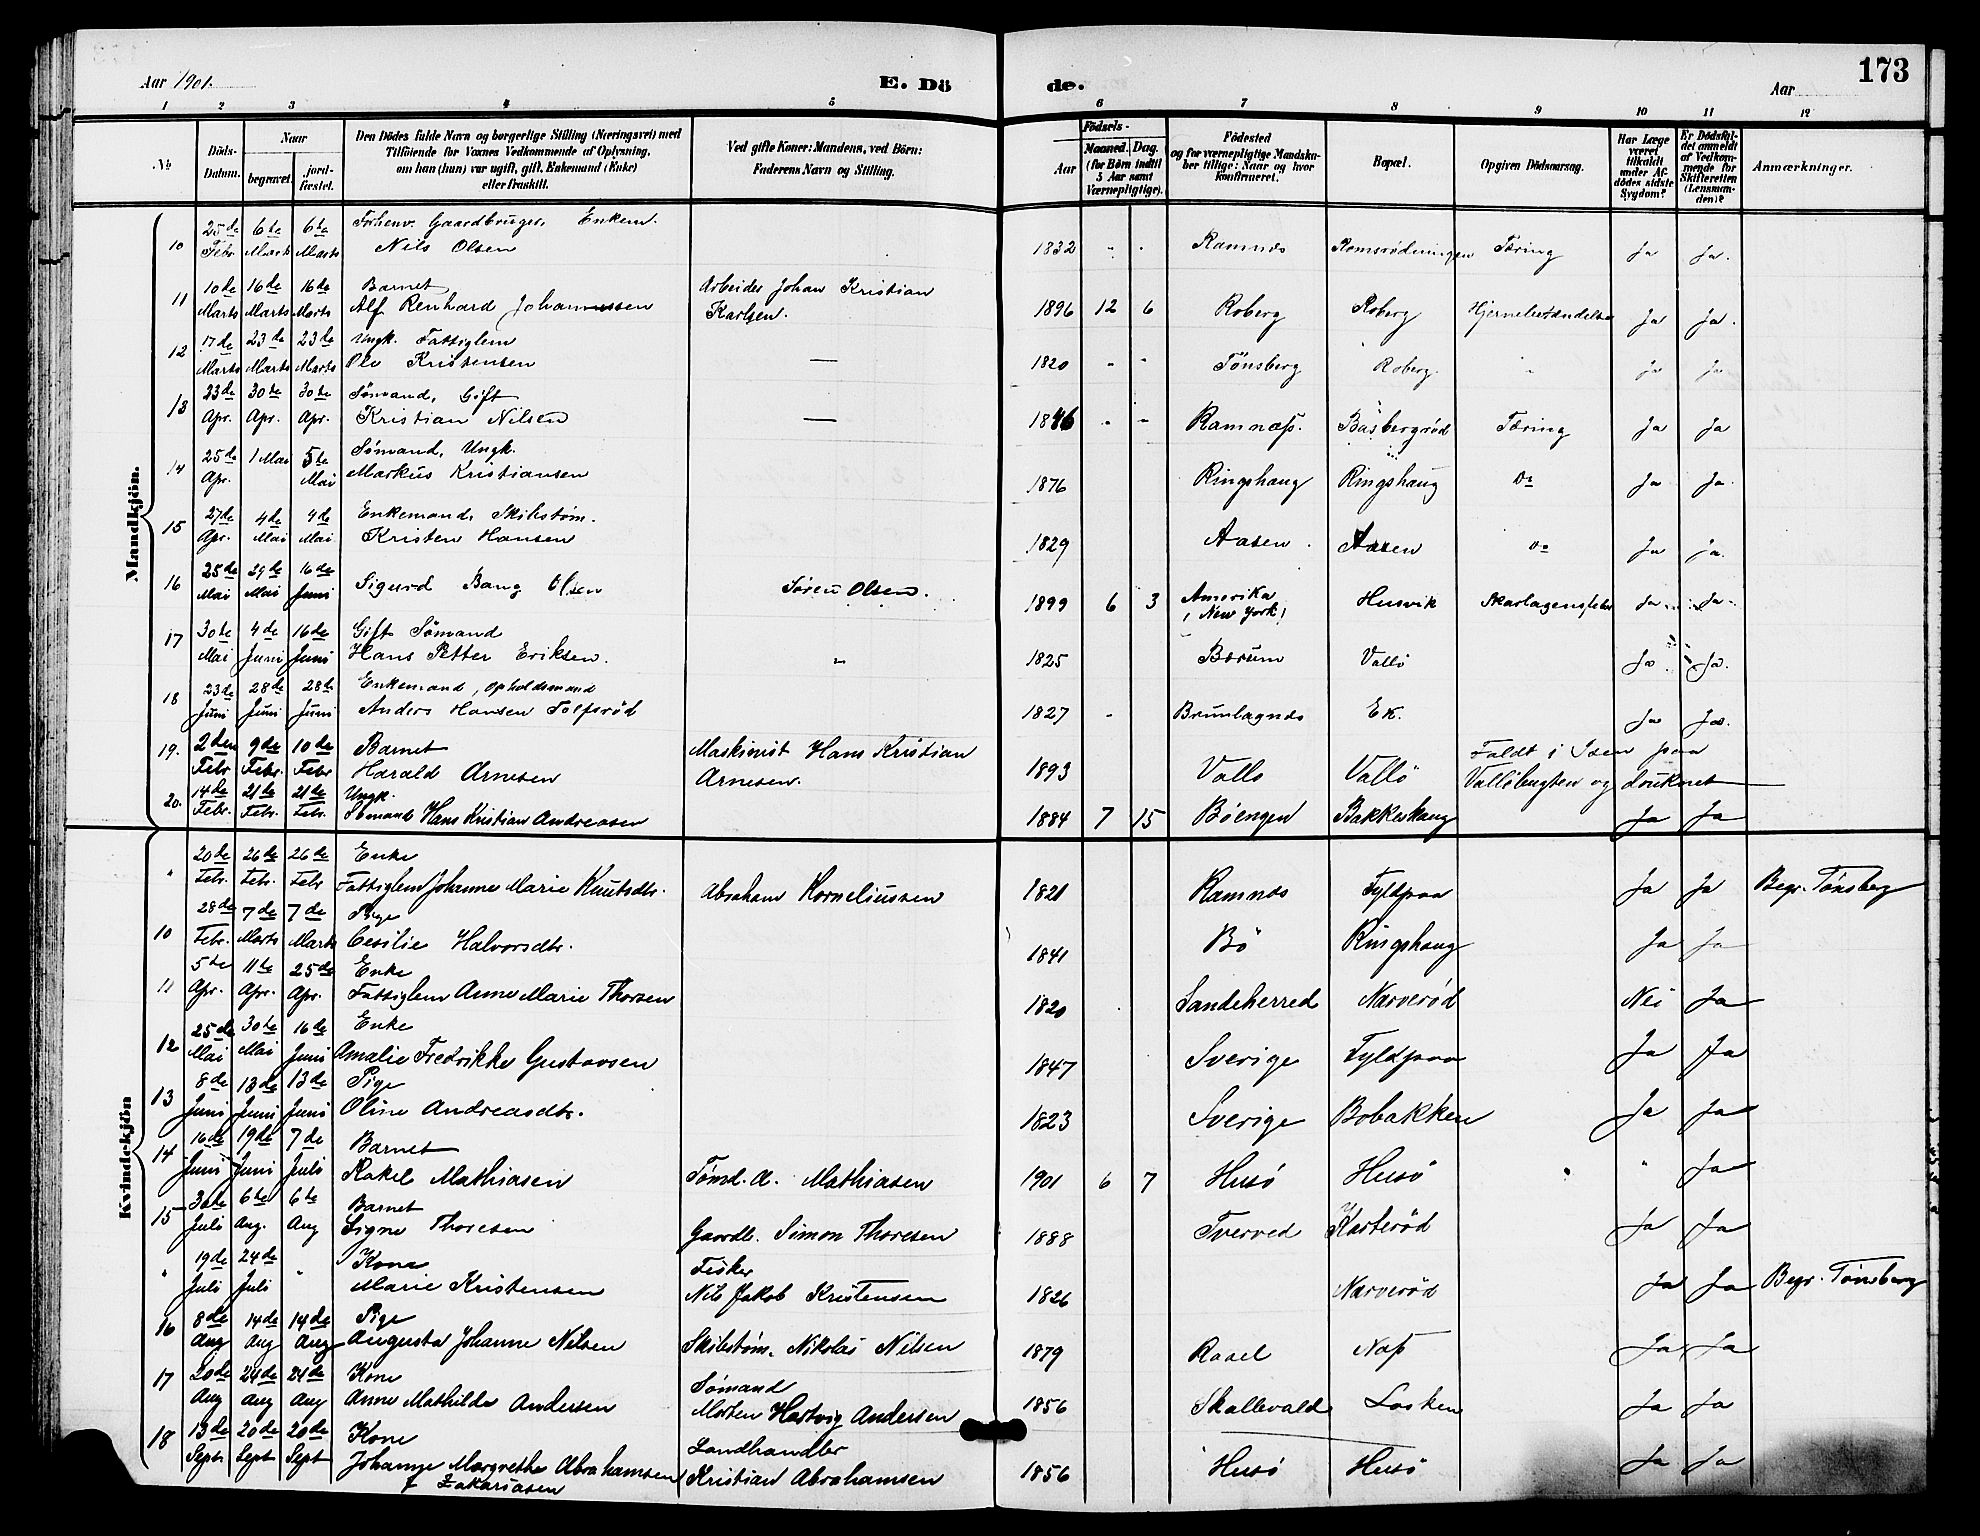 Aar 1901. E. Dö de. Aar 173
1 2 3 4 5 6 7 8 9 10 11 12
No. Döds-Datum. Naar begravet. jord-fæstet. Den Dödes fulde Navn og borgerlige Stilling (Næringsvei) med Tilföiende for Voxnes Vedkommende af Oplysning, om han (hun) var ugift, gift, Enkemand (Enke) eller fraskilt. Ved gifte Koner: Mandens, ved Börn: Faderens Navn og Stilling. Födsels- Aar Maaned. Dag. (for Börn indtil 5 Aar samt Værnepligtige). Födested og for værnepligtige Mandska-ber tillige: Naar og hvor konfirmeret. Bopæl. Opgiven Dödsaarsag. Har Læge været tilkaldt under Af-dödes sidste Sygdom? Er Dödsfal-det anmeldt af Vedkom-mende for Skifteretten (Lensman-den)? Anmærkninger.
Mandkjön.
10 25de Febr. 6te Marts 6te Marts Forhenv. Gaardbruger, Enkem. Nils Olsen 1832 " " Ramnæs Ramsrödningen Tæring Ja Ja.
11 10de Marts 16de Marts 16de Marts Barnet Alf Renhard Johannessen Arbeider Johan Kristian Karlsen. 1896 12 6 Roberg Roberg Hjernebetændelse Ja Ja.
12 17de Marts 23de Marts 23de Marts Ungk. Fattiglem Ole Kristensen — 1820 " " Tønsberg Roberg. " Ja Ja
13 23de Apr. 30te Apr. 30te Apr. Sømand, Gift Kristian Nilsen — 1846 " " Ramnæs. Basbergrød Tæring Ja Ja
14 25de Apr. 1 Mai 5te Mai Sømand, Ungk. Markus Kristiansen 1876 Ringshaug Ringshaug Do Ja Ja.
15 27de Apr. 4de Mai 4de Mai Enkemand, Skibstøm. Kristen Hansen 1829 Aasen. Aasen Do Ja Ja.
16 25de Mai 29de Mai 16de Juni Sigurd Bang Olsen Søren Olsen. 1899 6 3 Amerika (New York) Husvik Skarlagensfeber Ja. Ja.
17 30te Mai 4de Juni 16de Juni Gift Sømand Hans Petter Eriksen. " 1825 Bærum Vallö Ja. Ja.
18 23de Juni 28de Juni 28de Juni Enkemand, Opholdsmand Anders Hansen Tolfsrød 1827 " Brunlagnæs Ek. Ja Ja.
19. 2den Febr 9de Febr. 10de Febr Barnet Harald Arnesen Maskinist Hans Kristian Arnesen. 1893 Vallö Vallö Faldt i Isen paa Vallöbugten og druknet —
20. 14de Febr. 21de Febr. 21de Febr. Ungk. Sömand Hans Kristian Andreasen 1884 7 15 Böengen Bakkeshaug Ja Ja
Kvindekjön
" 20de Febr. 26de Febr. 26de Febr Enke Fattiglem Johanne Marie Knutsdtr. Abraham Korneliussen 1821 Ramnæs Fyldpaa Ja Ja Begr. Tønsberg
10 28de Febr. 7de Marts 7de Marts Pige Cecilie Halvorsdtr. 1841 Bö Ringshaug Ja Ja
11 5te Apr. 11te Apr. 25de Apr. Enke Fattiglem Anne Marie Thorsen 1820 Sandeherred Narverød Nei Ja
12 25de Mai 30te Mai 16de Juni Enke Amalie Fredrikke Gustavsen 1847 Sverige Fyldpaa Ja Ja
13 8de Juni 13de Juni 13de Juni Pige Oline Andreasdtr. 1823 Sverige Bobakken Ja Ja
14 16de Juni 19de Juni 7de Juli Barnet Rakel Mathiasen Tømd. A. Mathiasen 1901 6 7 Husö Husö " " Ja
15 30te Juli 6te Aug. 6te Aug Barnet Signe Thoresen Gaardb. Simon Thoresen 1888 Tverved Karterød Ja Ja
" 19de Juli 24de Juli " Kone Marie Kristensen Fisker Nils Jakob Kristensen 1826 Narverød Ja Ja Begr. Tønsberg
16 8de Aug 14de Aug 14de Aug Pige Augusta Johanne Nilsen Skibstøm. Nikolai Nilsen 1879 Rasel Næs Ja Ja
17 20de Aug 24de Aug 24de Aug Kone Anne Mathilde Andersen Sømand Morten Hartvig Andersen 1856 Skallevald Løkken Ja Ja
18 13de Sept. 20de Sept 20de Sept Kone Johanne Margrethe Abrahamsen f Zakariasen Landhandler Kristian Abrahamsen 1856 Husö Husö Ja Ja